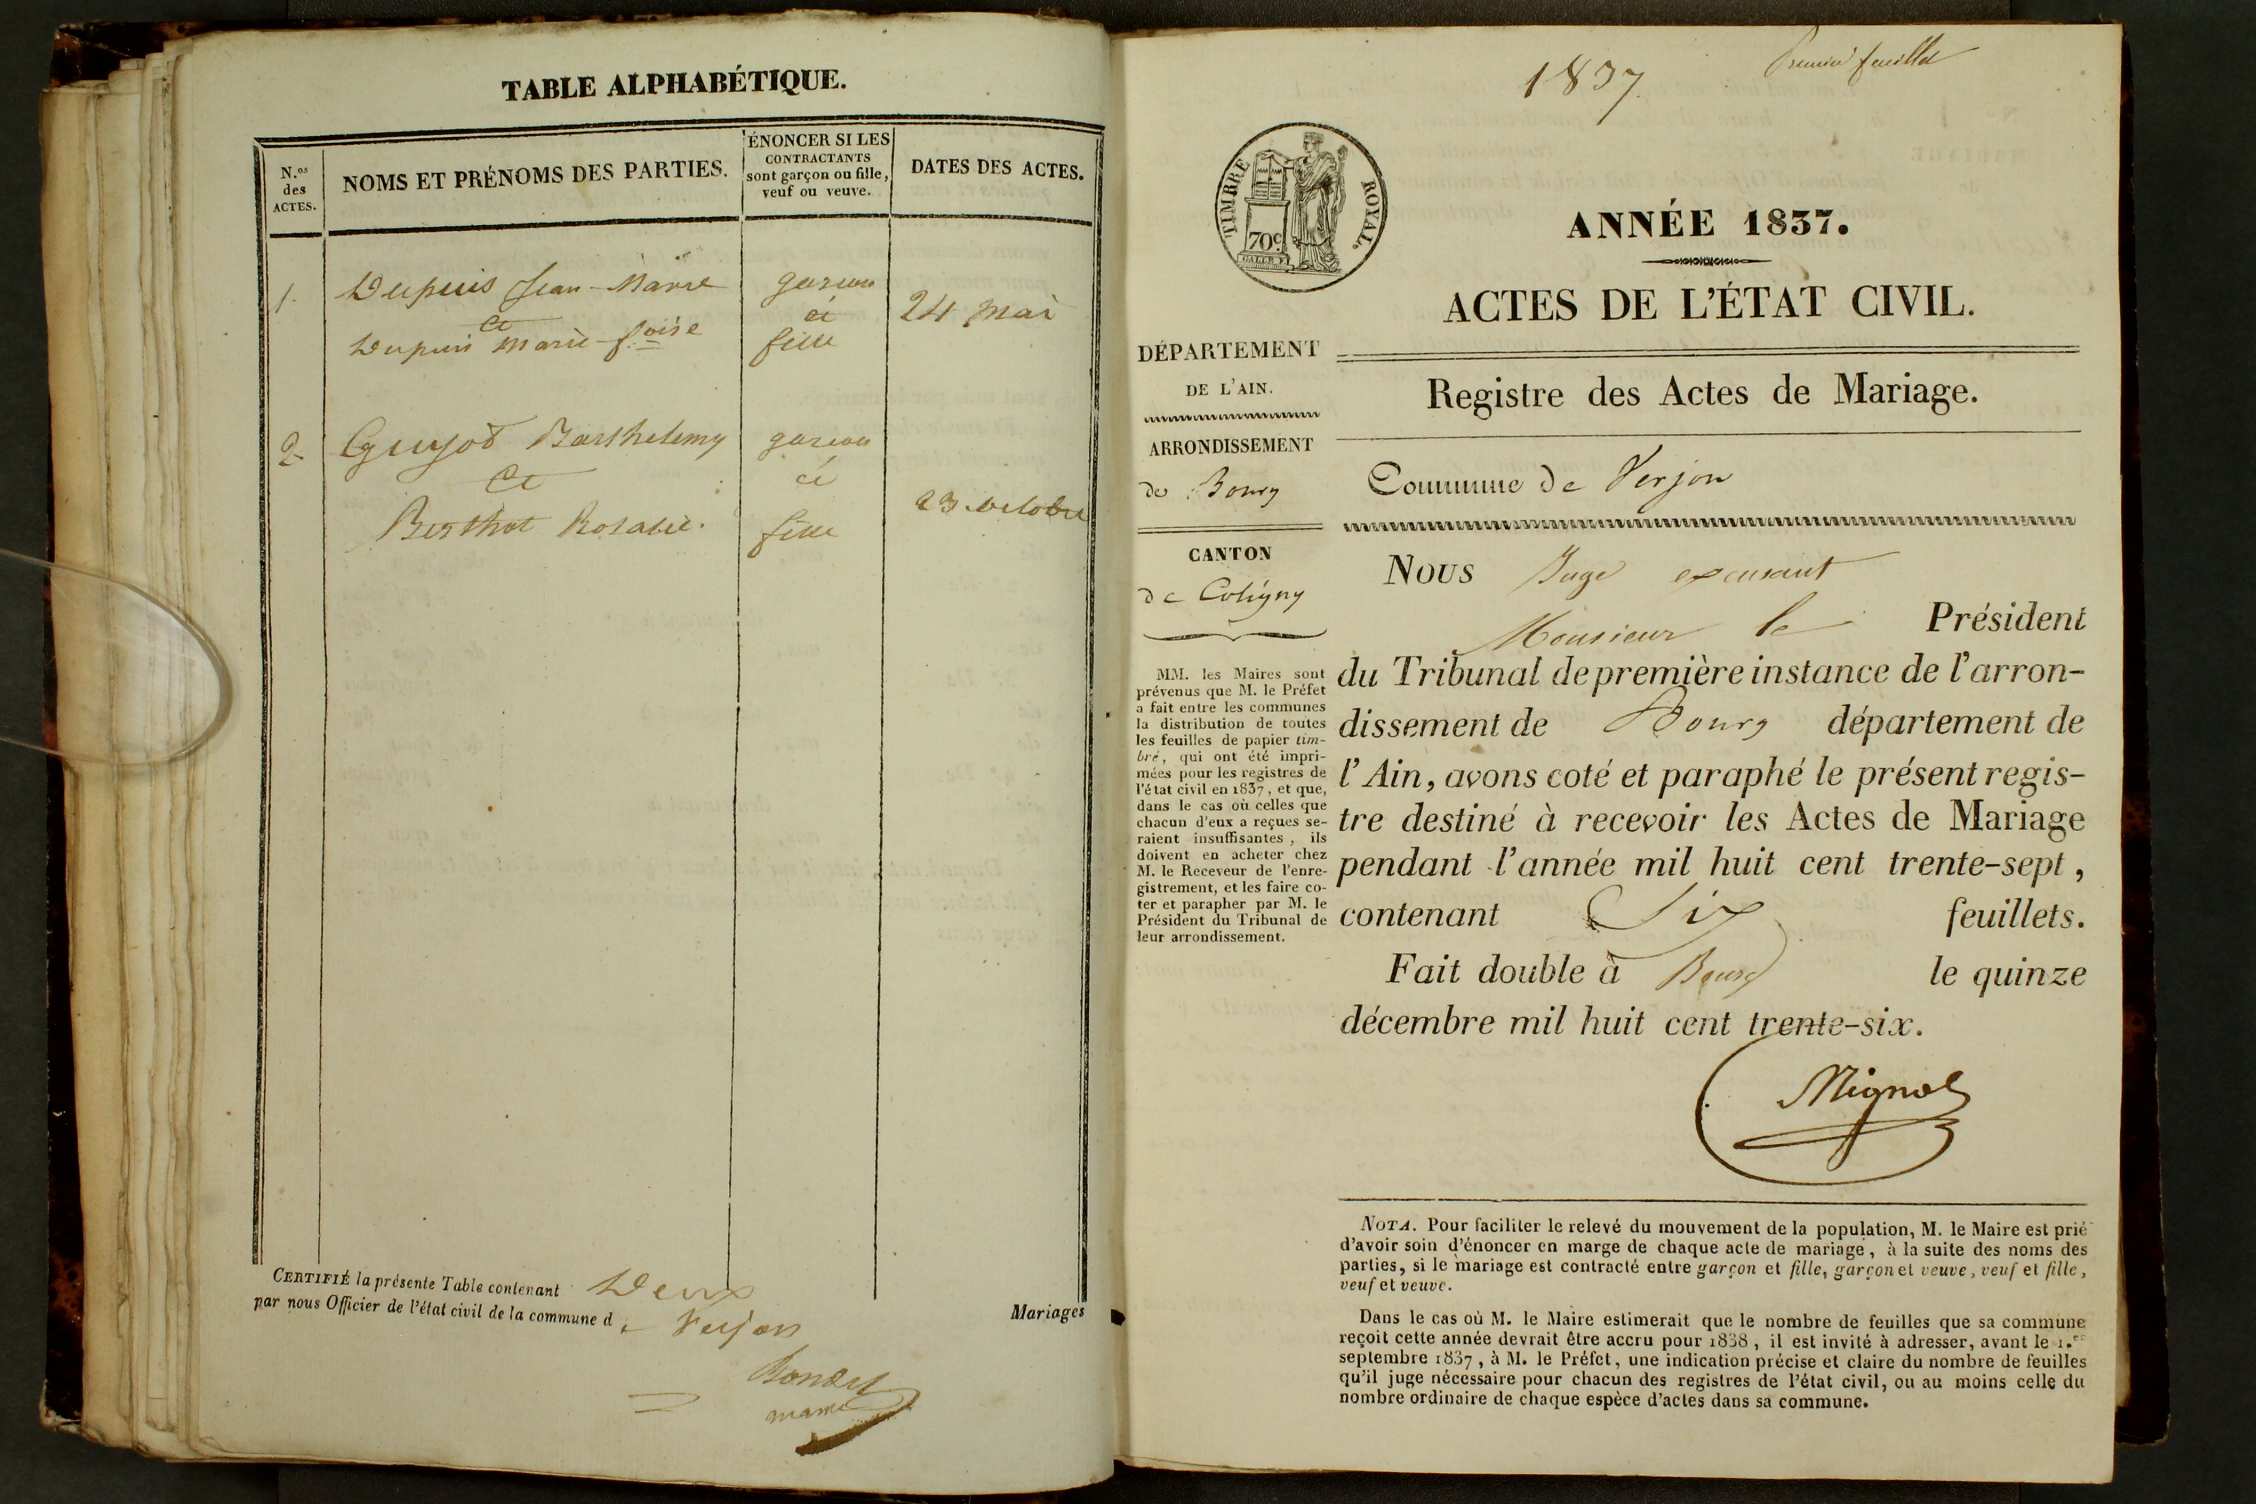 TABLE ALPHABÉTIQUE.
N.os des ACTES.
NOMS ET PRÉNOMS DES PARTIES.
ÉNONCER SI LES
CONTRACTANTS
sont garçon ou fille,
veuf ou veuve.
DATES DES ACTES.
1. Dupuis Jean-Marie garçon
et et 24 mai
Dupuis Marie-f.oise fille
2 Guyot Barthelemy garçon
et et
23 octobre
Berthot Rosalie. fille
CERTIFIÉ la présente Table contenant Deux Mariages
par nous Officier de l'état civil de la commune de Verjon
Bondet
maire
1837
Premier feuillet
TIMBRE ROYAL.
70c
ANNÉE 1837.
ACTES DE L'ÉTAT CIVIL.
DÉPARTEMENT
DE L'AIN.
ARRONDISSEMENT
de Bourg
CANTON
de Coligny
MM. les Maires sont
prévenus que M. le Préfet
a fait entre les communes
la distribution de toutes
les feuilles de papier tim-
bré, qui ont été impri-
mées pour les registres de
l'état civil en 1837, et que,
dans le cas où celles que
chacun d'eux a reçues se-
raient insuffisantes, ils
doivent en acheter chez
M. le Receveur de l'enre-
gistrement, et les faire co-
ter et parapher par M. le
Président du Tribunal de
leur arrondissement.
Registre des Actes de Mariage.
Commune de Verjon
Nous Juge excusant
Monsieur le Président
du Tribunal de première instance de l'arron-
dissement de Bourg département de
l'Ain, avons coté et paraphé le présent regis-
tre destiné à recevoir les Actes de Mariage
pendant l'année mil huit cent trente-sept,
contenant Six feuillets.
Fait double à Bourg le quinze
décembre mil huit cent trente-six.
Mignot
NOTA. Pour faciliter le relevé du mouvement de la population, M. le Maire est prié
d'avoir soin d'énoncer en marge de chaque acte de mariage, à la suite des noms des
parties, si le mariage est contracté entre garçon et fille, garçon et veuve, veuf et fille,
veuf et veuve.
Dans le cas où M. le Maire estimerait que le nombre de feuilles que sa commune
reçoit cette année devrait être accru pour 1838, il est invité à adresser, avant le 1.er
septembre 1837, à M. le Préfet, une indication précise et claire du nombre de feuilles
qu'il juge nécessaire pour chacun des registres de l'état civil, ou au moins celle du
nombre ordinaire de chaque espèce d'actes dans sa commune.